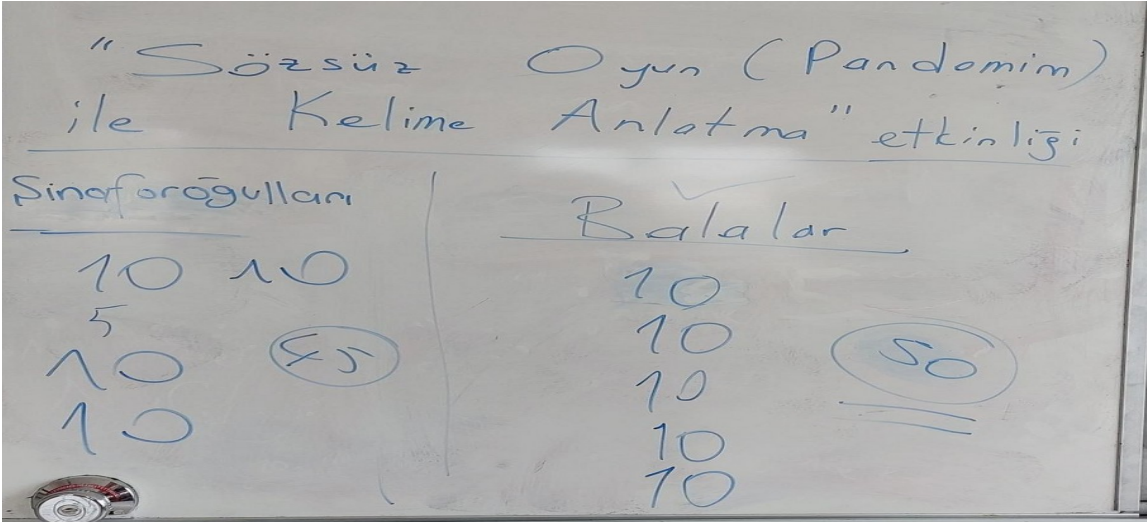 "Sözsüz Oyun (Pandomim)
ile Kelime Anlatma" etkinliği
Sinaforoğulları
Balalar
10 10
5
10
10
45
10
10
10
10
10
50